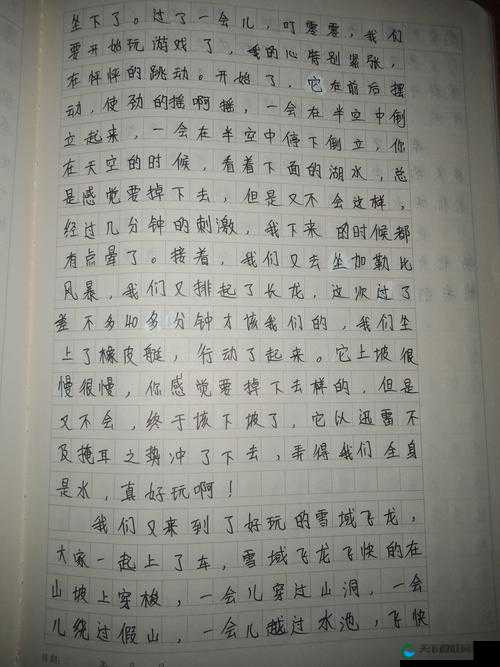 坐下了。过了一会儿，叮零零，我们
要开始玩游戏了，我的心特别紧张，
在怦怦的跳动。开始了，它在前后摆
动，使劲的摇啊摇，一会在半空中倒
立起来，一会在半空中停下倒立，你
在天空的时候，看着下面的湖水，总
是感觉要掉下去，但是又不会这样，
经过几分钟的刺激，我下来的时候都
有点晕了。接着，我们又去坐加勒比
风暴，我们又排起了长龙，这次过了
差不多40多分钟才该我们的，我们坐
上了橡皮艇，行动了起来。它上坡很
慢很慢，你感觉要掉下去样的，但是
又不会，终于该下坡了，它以迅雷不
及掩耳之势冲了下去，弄得我们全身
是水，真好玩啊！
我们又来到了好玩的雪域飞龙，
大家一起上了车，雪域飞龙飞快的在
山坡上穿梭，一会儿穿过山洞，一会
儿绕过假山，一会儿越过水池，飞快